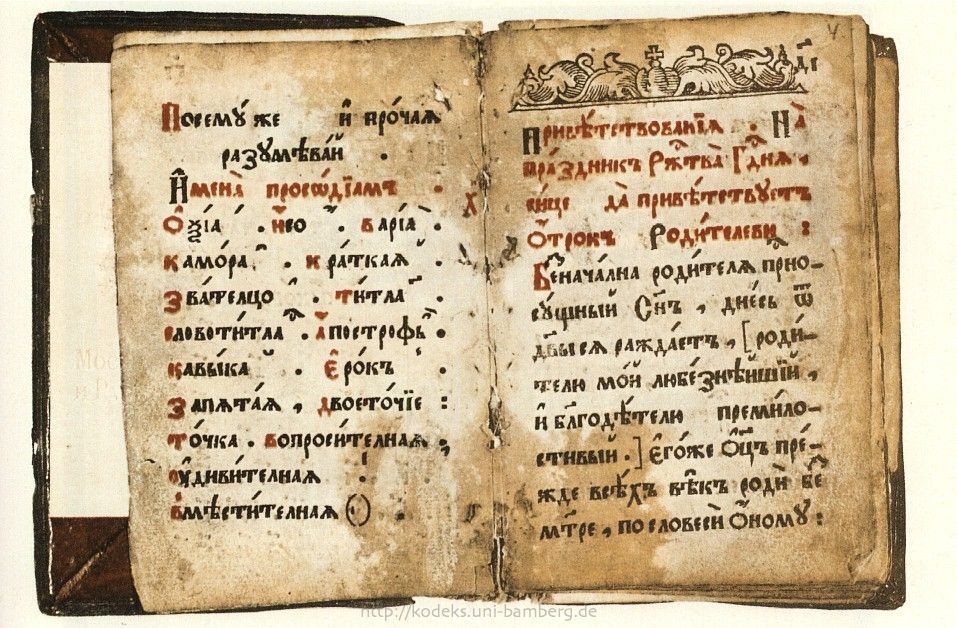 Посемꙋ́же и҆ про́чаѧ
разꙋмѣва́й .
И҆мена̀ просѡді́амъ .
Ѻ҆ѯі́а ́ . и҆́со ҆ . варі́а ̀ .
камо́ра ̑ . кра́ткаѧ ̆ .
зва́телцо ҆ . ти́тла ҃ .
словоти́тла . а҆постро́фъ .
кавы́ка . є҆ро́къ .
запѧта́ѧ , двоето́чїе :
то́чка . вопроси́телнаѧ ;
ᲂу҆диви́телнаѧ !
вмѣсти́телнаѧ () .
4
д҃і
Привѣ́тствованїѧ . На̀
пра́здникъ Рж҃тва̀ Гд҇нѧ .
си́це да̀ привѣ́тствꙋетъ
Ѻ҆́трокъ Роди́телеви :
Безнача́лна роди́телѧ прⷭ҇но-
сꙋ́щный Сн҃ъ , дне́сь ѿ
дв҃ы сѧ ражда́етъ , [ роди́-
телю мо́й любе́знѣйшїй ,
и҆ бл҃годѣ́телю преми́ло-
стивый . ] є҆го́же Ѻ҆ц҃ъ пре́-
жде всѣ́хъ вѣ̑къ родѝ бе
мт҃ре , по словесѝ Ѻ҆номꙋ :
http://kodeks.uni-bamberg.de